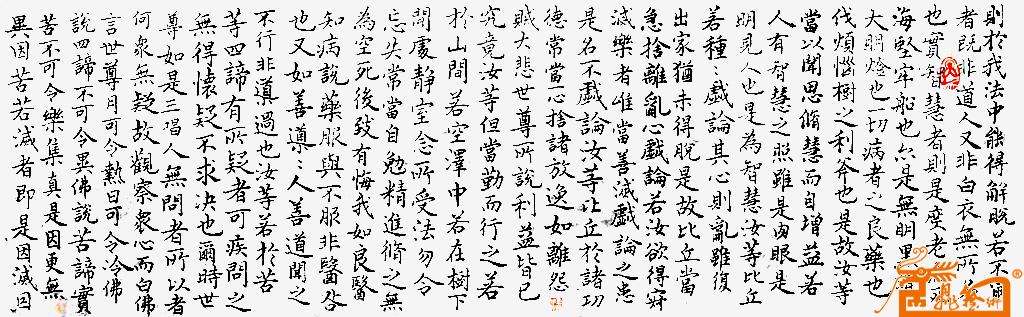 則於我法中能得解脫若不
者既非道人又非白衣無所
也實智慧者則是度老
海堅牢船也亦是無明黑
大明燈也一切病者之良藥也
伐煩惱樹之利斧也是故汝等
當以聞思脩慧而自增益若
人有智慧之照雖是肉眼是
明見人也是為智慧汝等比丘
若種〻戲論其心則亂雖復
出家猶未得脫是故比丘當
急捨離亂心戲論若汝欲得寂
滅樂者唯當善滅戲論之患
是名不戲論汝等比丘於諸功
德常當一心捨諸放逸如離怨
賊大悲世尊所說利益皆已
究竟汝等但當勤而行之若
於山間若空澤中若在樹下
閒處靜室念所受法勿令
忘失常當自勉精進脩之無
為空死後致有悔我如良醫
知病說藥服與不服非醫咎
也又如善導〻人善道聞之
不行非導過也汝等若於苦
等四諦有所疑者可疾問之
無得懷疑不求決也爾時世
尊如是三唱人無問者所以者
何眾無疑故觀察眾心而白佛
言世尊月可令熱日可令冷佛
說四諦不可令異佛說苦諦實
苦不可令樂集真是因更無
異因苦若滅者即是因滅因